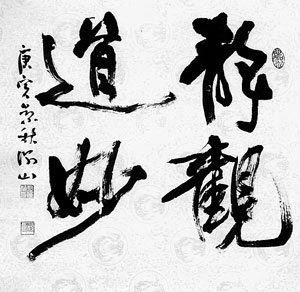 靜觀
道妙
庚寅初秋深山